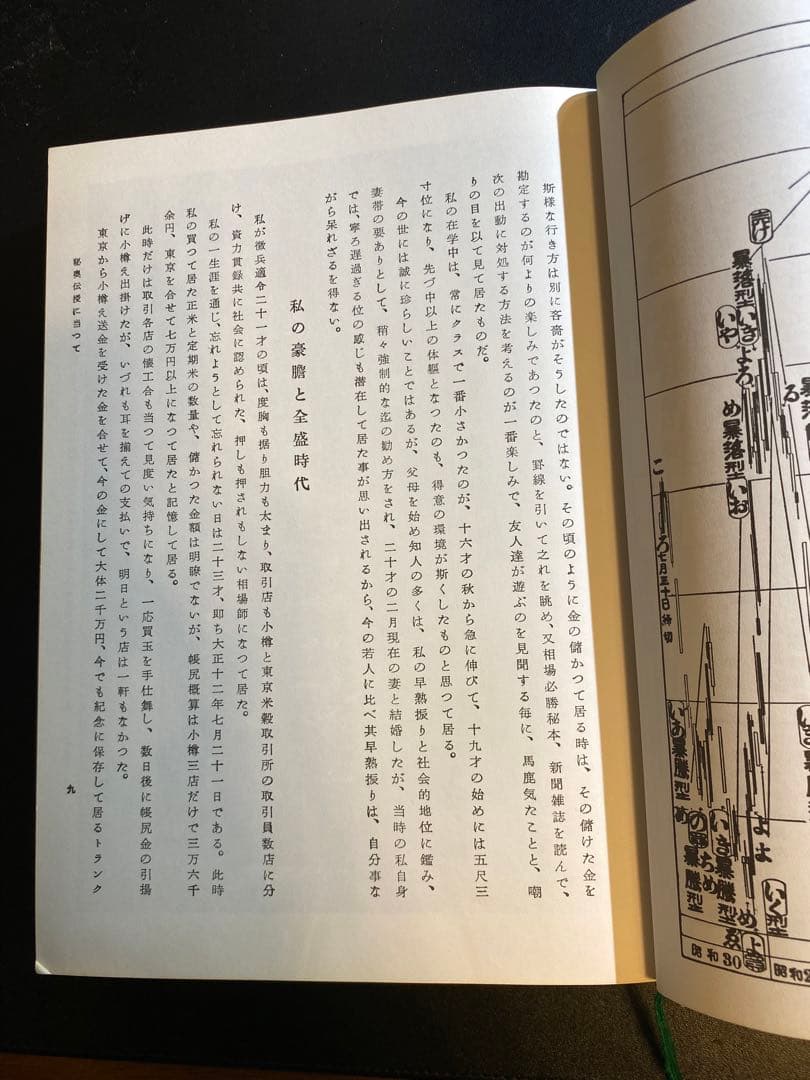 斯様な行き方は別に吝嗇がそうしたのではない。その頃のように金の儲かつて居る時は、その儲けた金を
勘定するのが何よりの楽しみであつたのと、罫線を引いて之れを眺め、又相場必勝秘本、新聞雑誌を読んで、
次の出動に対処する方法を考えるのが一番楽しみで、友人達が遊ぶのを見聞する毎に、馬鹿気たことと、嘲
りの目を以て見て居たものだ。
私の在学中は、常にクラスで一番小さかつたのが、十六才の秋から急に伸びて、十九才の始めには五尺三
寸位になり、先づ中以上の体軀となつたのも、得意の環境が斯くしたものと思つて居る。
今の世には誠に珍らしいことではあるが、父母を始め知人の多くは、私の早熟振りと社会的地位に鑑み、
妻帯の要ありとして、稍々強制的な迄の勧め方をされ、二十才の二月現在の妻と結婚したが、当時の私自身
では、寧ろ遅過ぎる位の感じも潜在して居た事が思い出されるから、今の若人に比べ其早熟振りは、自分事な
がら呆れざるを得ない。
私の豪膽と全盛時代
私が徴兵適令二十一才の頃は、度胸も据り胆力も太まり、取引店も小樽と東京米穀取引所の取引員数店に分
け、資力貫録共に社会に認められた、押しも押されもしない相場師になつて居た。
私の一生涯を通じ、忘れようとして忘れられない日は二十三才、即ち大正十二年七月二十一日である。此時
私の買つて居た正米と定期米の数量や、儲かつた金額は明瞭でないが、帳尻概算は小樽三店だけで三万六千
余円、東京を合せて七万円以上になつて居たと記憶して居る。
此時だけは取引各店の懐工合も当つて見度い気持ちになり、一応買玉を手仕舞し、数日後に帳尻金の引揚
げに小樽え出掛けたが、いづれも耳を揃えての支払いで、明日という店は一軒もなかつた。
東京から小樽え送金を受けた金を合せて、今の金にして大体二千万円、今でも紀念に保存して居るトランク
秘奥伝授に当つて
九
売け
暴落型
いき
よろ
いや
め
暴落型
いお
る
こ
ろ
七月三十日締切
いの暴騰型
め
の
暴騰型
ちめ
いき暴騰型
め
よ
よ
いく型
昭和30
昭和